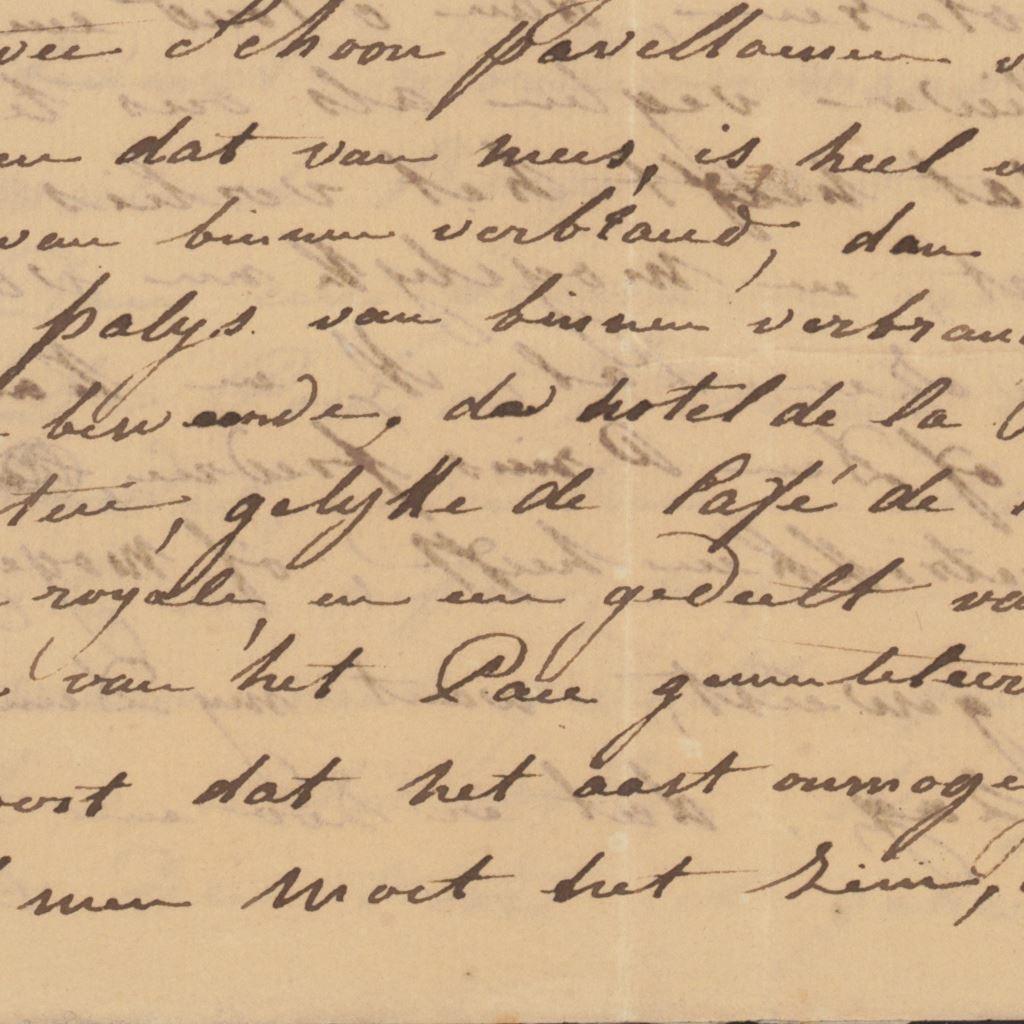 Schoon pavellaenen
dat van mees, is heel
van binnen verbrand, dan
palys van binnen verbran
bewoonde, da hotel de la
gelykke de Café de
royale, en een gedeelt va
van het Parc gemuteleer
dat het aast onmoge
men moet het zien,